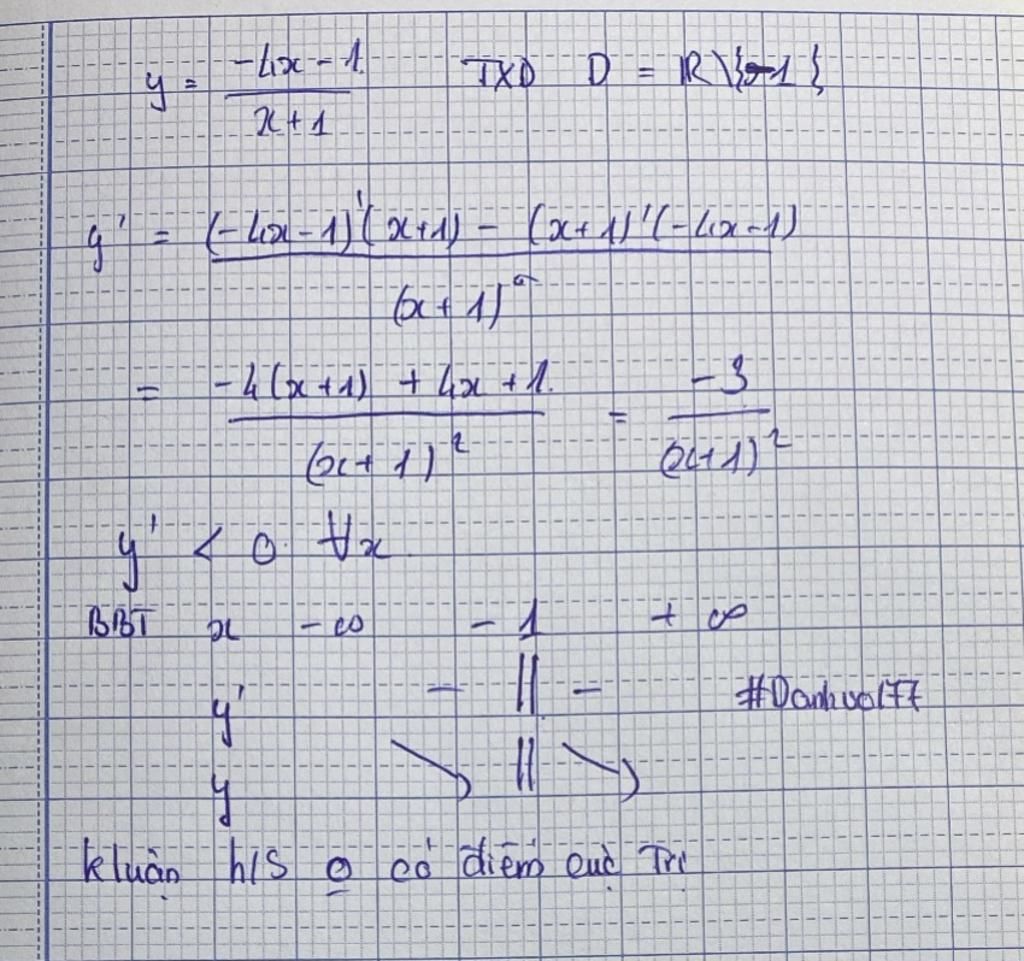 y = (-4x - 1)/(x + 1) TXD D = ℝ \ {-1}
y' = ((-4x-1)'(x+1) - (x+1)'(-4x-1))/(x+1)²
= (-4(x+1) + 4x + 1)/(x+1)² = -3/(x+1)²
y' < 0 ∀x
BBT x -∞ -1 +∞
y' - || - #Danhvol77
y ↘ || ↘
kluận h/s o có điểm cực trị